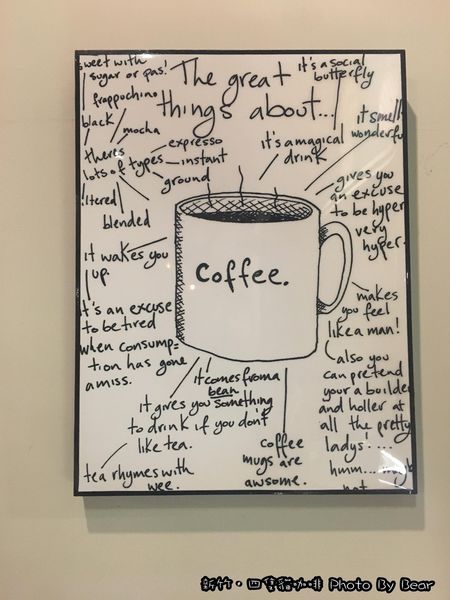 The great
things about...
Coffee.
sweet with
sugar or pas!
frappuchino
black
mocha
theres
lots of types
expresso
instant
ground
blended
it wakes you
up.
it's an excuse
to be tired
when consump=
tion has gone
amiss.
it comes from a
bean
it gives you something
to drink if you don't
like tea.
tea rhymes with
wee.
coffee
mugs are
awsome.
it's a social
butterfly
it's a magical
drink
it smells
wonderfu
gives you
an excuse
to be hyper
very
hyper.
makes
you feel
like a man!
also you
can pretend
your a builde
and holler at
all the pretty
ladys!....
hmm...
not
新竹·四寶貓咖啡 Photo By Bear